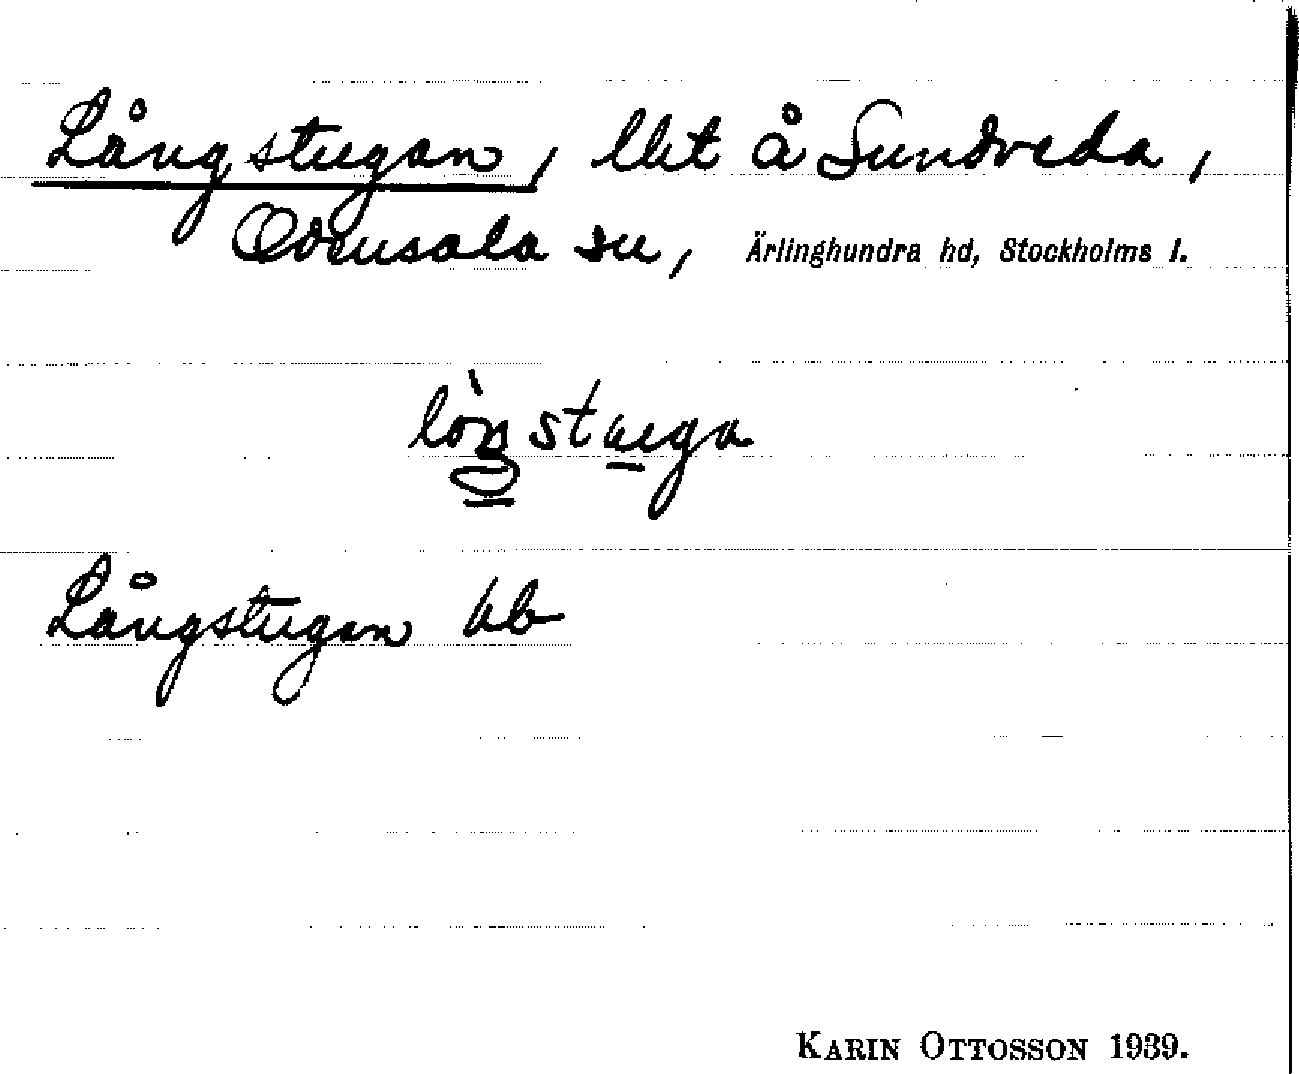 Långstugan, llit å Sundveda,
Odensala sn, Ärlinghundra hd, Stockholms l.
Långstugan hb
KARIN OTTOSSON 1939.